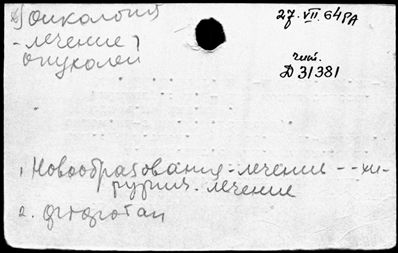 Онкология
27.VII.64
- лечение
опухолей
чит.
Д 31381
1. Новообразования - лечение -- хи-
рургич. лечение
2. фторотан